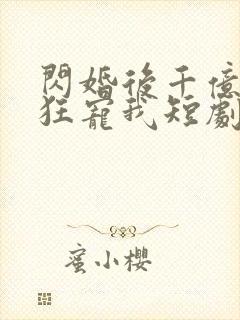 閃婚後千億
狂寵我短劇
蜜小櫻